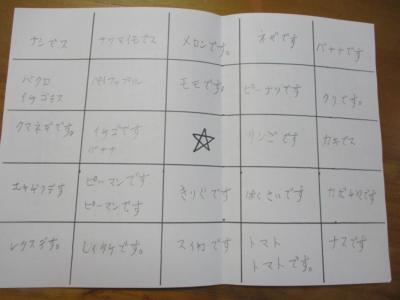 ナシです
サツマイモです
メロンです。
ネギです
バナナです
イチゴラス
パイナップル
モモです。
ピーナツです
クリです。
タマネギです。
イチゴです
バナナ
リンゴです
カキです
ピーマンです
ピーマンです
きゅうりです
はくさいです
カボチャです
レタスです。
しいたけです。
スイカです
トマト
トマトです。
ナスです